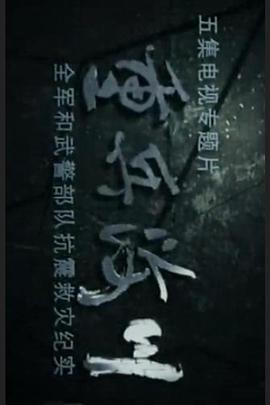 五集电视专题片
重兵汶川
全军和武警部队抗震救灾纪实